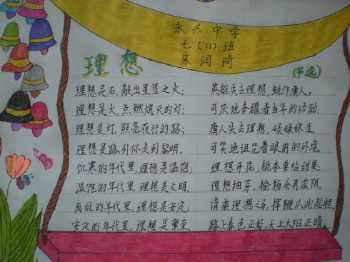 永兴中学
七（11）班
理想
（节选）
理想是石，敲出星星之火；
理想是火，点燃熄灭的灯；
理想是灯，照亮夜行的路；
理想是路，引你走到黎明。
饥寒的年代里，理想是温饱；
温饱的年代里，理想是文明。
离乱的年代里，理想是安定；
安定的年代里，理想是繁荣。
英雄失去理想，蜕作庸人，
可厌地夸耀着当年的功勋；
庸人失去理想，碌碌终生，
可笑地诅咒着眼前的环境。
理想开花，桃李要结甜果；
理想抽芽，榆杨会有浓阴。
请乘理想之马，挥鞭从此起程，
路上春色正好，天上太阳正晴。